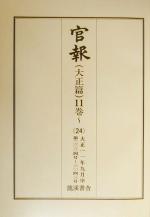 官報
(大正篇)11巻〜
(24)
大正一一年九月中
龍溪書舎